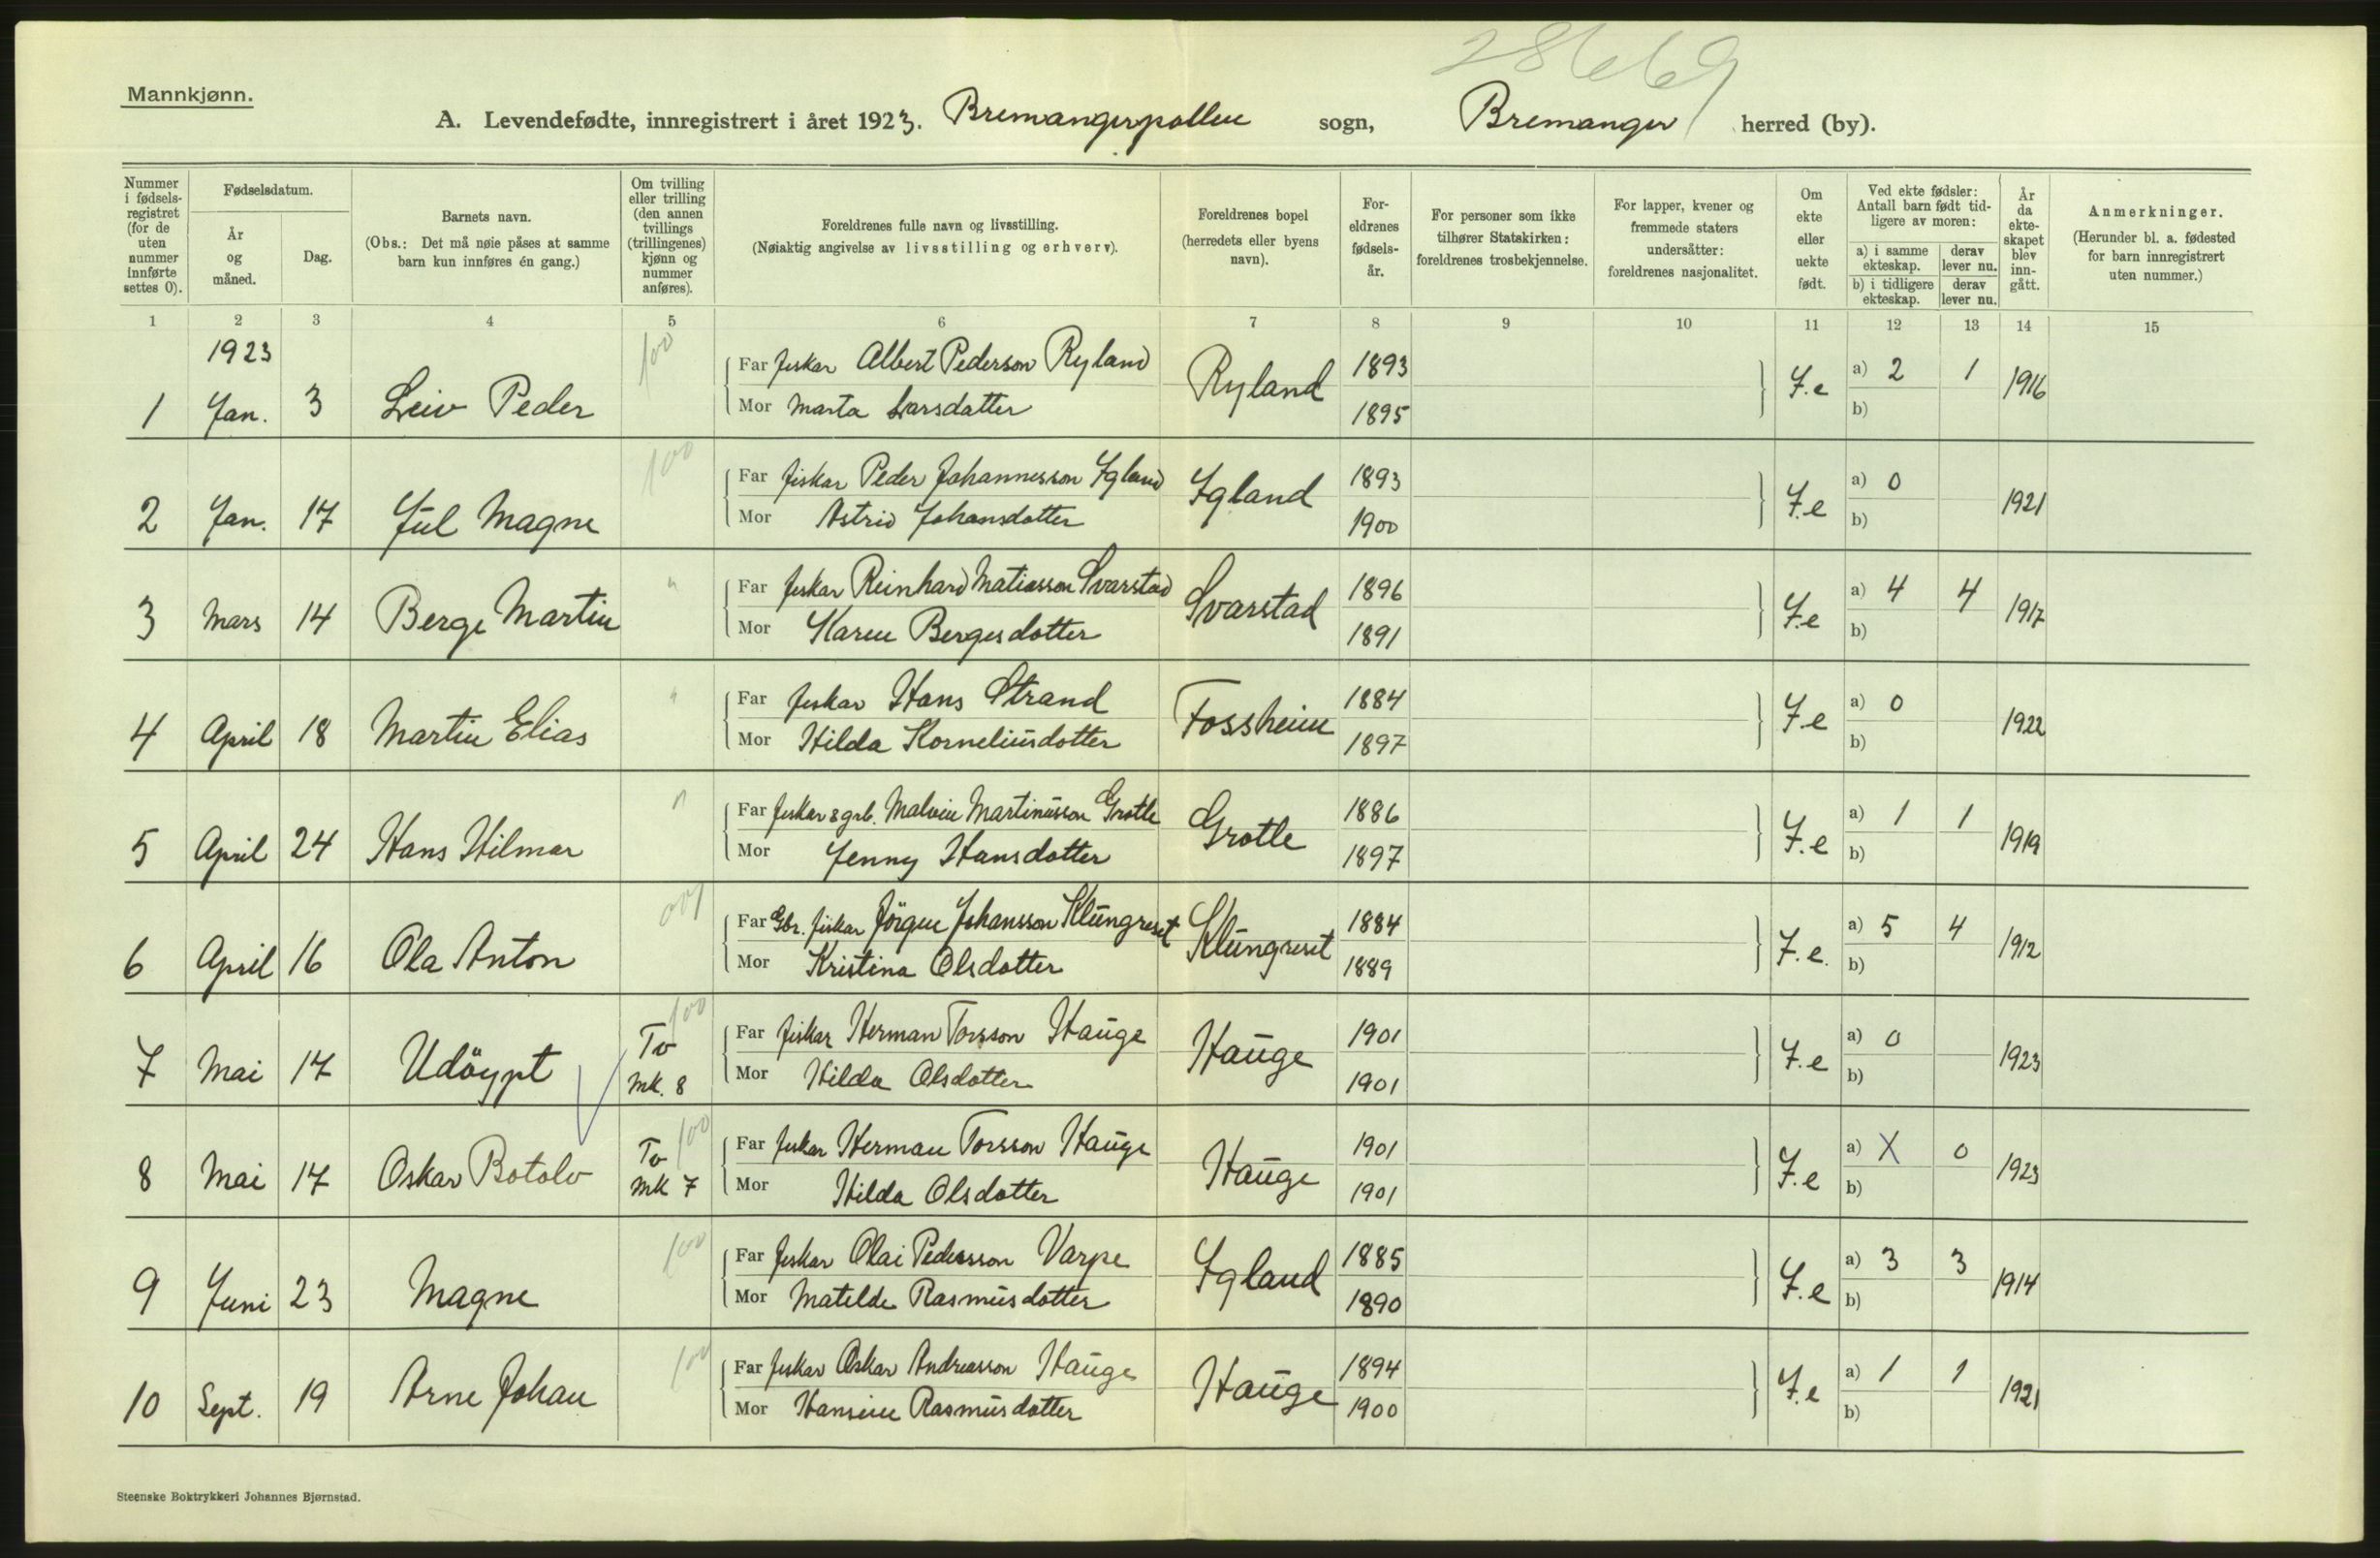 28669
Mannkjønn.
A. Levendefødte, innregistrert i året 1923. Bremangerpollen sogn, Bremanger herred (by).
Nummer i fødsels-registret (for de uten nummer innførte settes 0).
Fødselsdatum.
År og måned.
Dag.
Barnets navn.
(Obs.: Det må nøie påses at samme barn kun innføres én gang.)
Om tvilling eller trilling (den annen tvillings (trillingenes) kjønn og nummer anføres).
Foreldrenes fulle navn og livsstilling.
(Nøiaktig angivelse av livsstilling og erhverv).
Foreldrenes bopel (herredets eller byens navn).
For-eldrenes fødsels-år.
For personer som ikke tilhører Statskirken: foreldrenes trosbekjennelse.
For lapper, kvener og fremmede staters undersåtter: foreldrenes nasjonalitet.
Om ekte eller uekte født.
Ved ekte fødsler: Antall barn født tid-ligere av moren:
a) i samme ekteskap.
derav lever nu.
b) i tidligere ekteskap.
derav lever nu.
År da ekte-skapet blev inn-gått.
Anmerkninger.
(Herunder bl. a. fødested for barn innregistrert uten nummer.)
1 2 3 4 5 6 7 8 9 10 11 12 13 14 15
1923
100
Far fiskar Albert Pederson Ryland 1893 a) 2 1
1 Jan. 3 Leiv Peder Ryland F.e 1916
Mor Marta Larsdatter 1895 b)
100
Far fiskar Peder Johannesson Igland 1893 a) 0
2 Jan. 17 Jul Magne Igland F.e 1921
Mor Astrid Johansdotter 1900 b)
"
Far fiskar Reinhard Matiasson Svarstad 1896 a) 4 4
3 Mars 14 Berge Martin Svarstad F.e 1917
Mor Karen Bergesdotter 1891 b)
"
Far fiskar Hans Strand 1884 a) 0
4 April 18 Martin Elias Fossheim F.e 1922
Mor Hilda Korneliusdotter 1897 b)
"
Far fiskar & grb. Malvin Martinusson Grotle 1886 a) 1 1
5 April 24 Hans Hilmar Grotle F.e 1919
Mor Jenny Hansdotter 1897 b)
Far Gbr. fiskar Jörgen Johansson Klungreset 1884 a) 5 4
6 April 16 Ola Anton Klungreset F.e. 1912
Mor Kristina Olsdotter 1889 b)
100
Tv
Far fiskar Herman Torsson Hauge 1901 a) 0
7 Mai 17 Udöypt Hauge F.e 1923
mk. 8
Mor Hilda Olsdotter 1901 b)
100
Tv
Far fiskar Herman Torsson Hauge 1901 a) X 0
8 Mai 17 Oskar Botolv Hauge F.e 1923
mk 7
Mor Hilda Olsdotter 1901 b)
100
Far fiskar Olai Pedersson Varpe 1885 a) 3 3
9 Juni 23 Magne Igland F.e 1914
Mor Matelde Rasmusdotter 1890 b)
100
Far fiskar Oskar Andreasson Hauge 1894 a) 1 1
10 Sept. 19 Arne Johan Hauge F.e 1921
Mor Hansine Rasmusdotter 1900 b)
Steenske Boktrykkeri Johannes Bjørnstad.